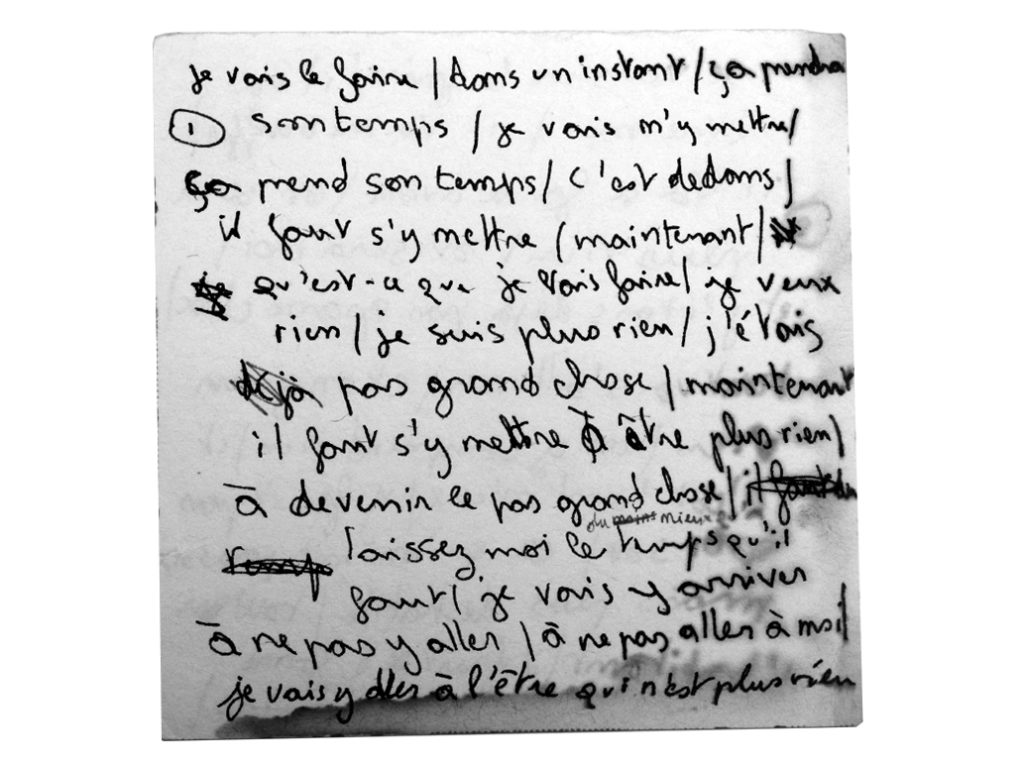 je vais le faire / dans un instant / ça prendra
1 son temps / je vais m'y mettre /
ça prend son temps / c'est dedans /
il faut s'y mettre / maintenant /
qu'est-ce que je vais faire / je veux
rien / je suis plus rien / j'étais
déjà pas grand chose / maintenant
il faut s'y mettre à être plus rien /
à devenir le pas grand chose / il faut du
du moins mieux
temps laissez moi le temps qu'il
faut / je vais y arriver
à ne pas y aller / à ne pas aller à moi /
je vais y aller à l'être qui n'est plus rien